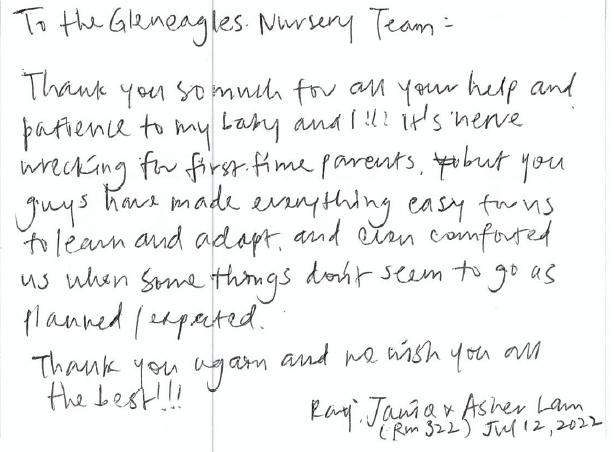 To the Gleneagles Nursery Team =
Thank you so much for all your help and
patience to my baby and I!!! it's nerve
wrecking for first-time parents, but you
guys have made everything easy for us
to learn and adapt, and even comforted
us when some things don't seem to go as
planned/expected.
Thank you again and we wish you all
the best!!!
Ray, Jania & Asher Lam
(Rm 322) Jul 12, 2022